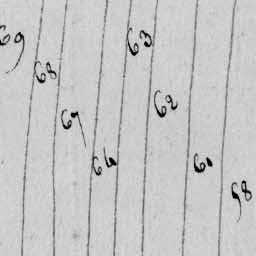 69
63
68
62
67
60
58